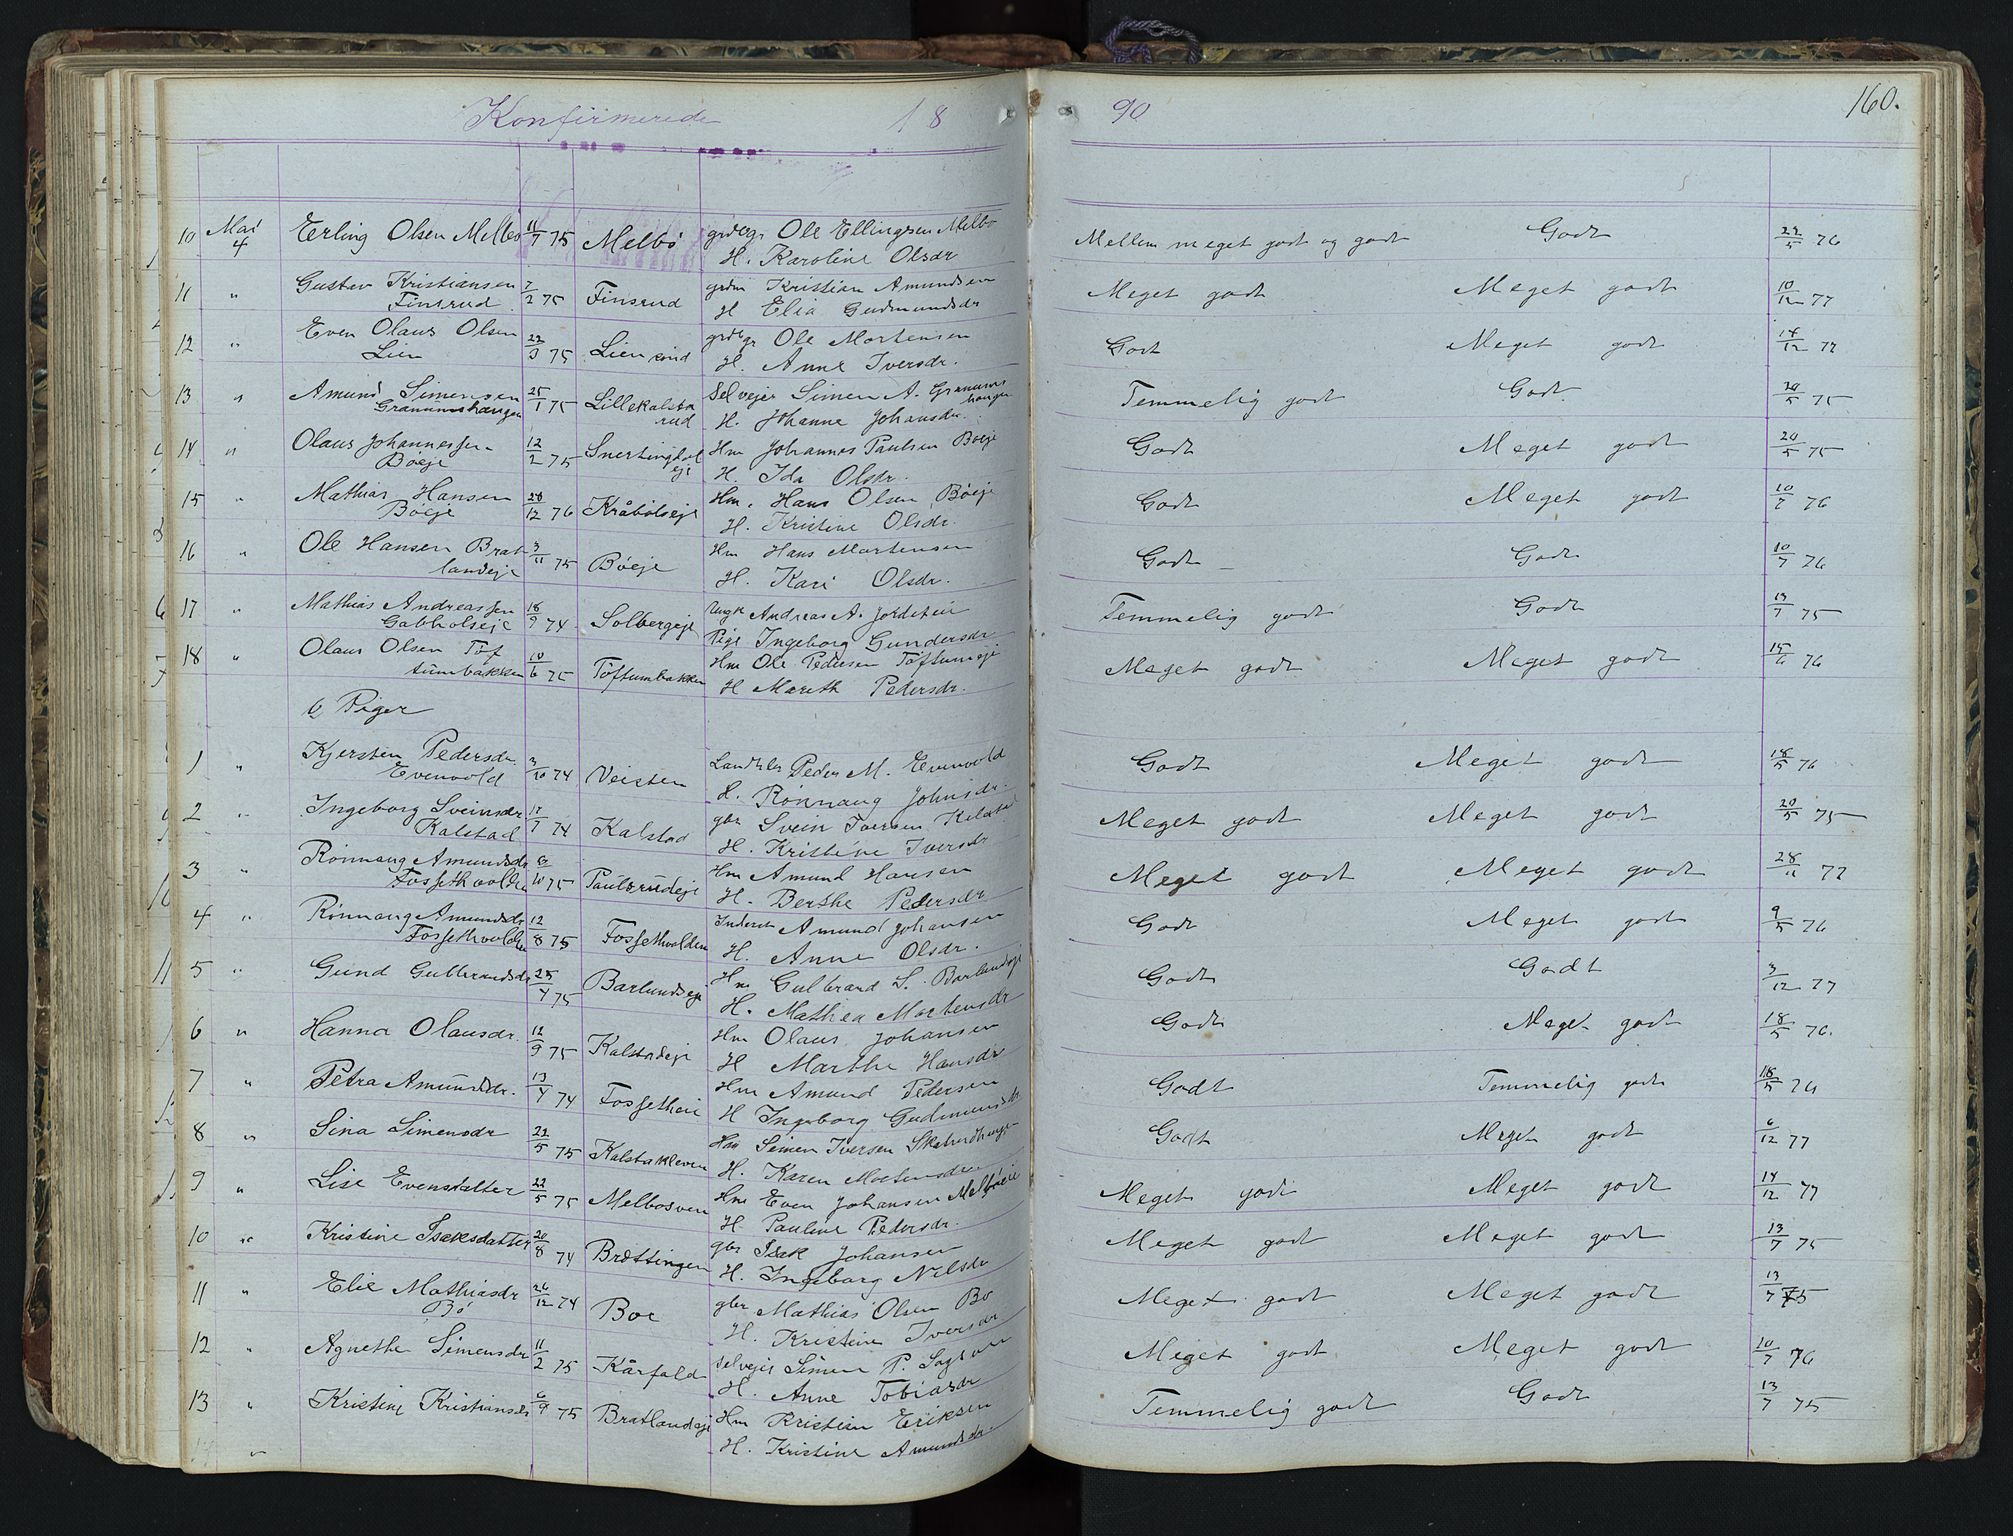 Konfirmerede 18 90 160.
10 Mai 4 Erling Olsen Melbo 11/7 75 Melbö grdbgr Ole Ellingsen Melbo Mellem meget godt og godt Godt 29/5 76
H. Karoline Olsdr
11 " Gustav Kristiansen 7/2 75 Finsrud grdm Kristian Amundsen Meget godt Meget godt 10/12 77
Finsrud H Elia Gudmundsdr
12 " Even Olaus Olsen 22/3 75 Lien grdbgr Ole Mortensen Godt Meget godt 14/12 77
Lien H. Anne Iversdr.
13 " Amund Simensen 25/1 75 Lillekalsta Selvejer Simen A. Granums Temmelig godt Godt 20/5 75
Granumshaugen rud haugen
H. Johanne Johansdr.
14 " Olaus Johannessen 12/2 75 Snertingdal Hm Johannes Paulsen Boeje Godt Meget godt 20/5 75
Böeje eje H. Ida Olsdr.
15 " Mathias Hansen 28/12 76 Kråbölseje Hm. Hans Olsen Böeje Godt Meget godt 10/7 76
Böeje H. Kristine Olsdr.
16 " Ole Hansen Brat 3/11 75 Böeje Hm Hans Mortensen Godt Godt 10/7 76
landeje H. Kari Olsdr.
17 " Mathias Andreassen 18/9 74 Solbergeje Ungk Andreas A. Temmelig godt Godt 13/7 75
Gabholseje Pige Ingeborg Gundersdr
18 " Olaus Olsen Töf 10/6 75 Töftumbakken Hm Ole Pedersen Töftumeje Meget godt Meget godt 15/6 76
tumbakken H Mareth Pedersdr.
b, Piger
1 " Kjersten Pedersdr. 3/10 74 Veisten Peder M. Evenvold Godt Meget godt 18/5 76
Evenvold H. Rönnaug Johnsdr.
2 " Ingeborg Sveinsdr 17/7 74 Kalstad gbr Svein Iversen Kalstad Meget godt Meget godt 20/5 75
Kalstad H. Kristine Iversdr
3 " Rönnaug Amundsdr 6/10 75 Paulsrudeje Hm Amund Hansen Meget godt Meget godt 28/11 77
Fossethvolden H. Berthe Pedersdr
4 " Rönnaug Amundsdr 12/8 75 Fossethvolden Inderst Amund Johansen Godt Meget godt 9/5 76
Fossethvolden H. Anne Olsdr.
5 " Gund Gulbrandsdr 25/4 75 Barlundseje Hm Gulbrand S. Barlundseje Godt Godt 3/12 77
H. Mathea Mortensdr
6 " Hanna Olausdr. 12/9 75 Kalstadeje Hm Olaus Johansen Godt Meget godt 18/5 76.
H Marthe Hansdr
7 " Petra Amundsdr. 13/4 74 Fossetheie Hm Amund Pedersen Godt Temmelig godt 18/5 76
H Ingeborg Gudmundsdr
8 " Sina Simensdr 21/5 75 Kalstakleven Hm Simen Iversen Godt Meget godt 6/12 77
H. Karen Mortensdr
9 " Lise Evensdatter 22/5 75 Melbosveen Hm Even Johansen Melböeie Meget godt Meget godt 14/12 77
H Pauline Pedersdr.
10 " Kristine Isaksdatter 20/8 74 Brættingen gbr Isak Johansen Meget godt Meget godt 13/7 75
H. Ingeborg Nilsdr
11 " Elie Mathiasdr 26/12 74 Boe gbr Mathias Olsen Bö Meget godt Meget godt 13/7 75
Bö H. Kristine Iversdr
12 " Agnethe Simensdr 11/2 75 Kårfald selvejer Simen P. Meget godt Meget godt 10/7 76
H. Anne Tobiasdr
13 " Kristine Kristiansdr 6/9 75 Bratlandseje Hm Kristian Eriksen Temmelig godt Godt 13/7 75
14 " H. Kristine Amundsdr.